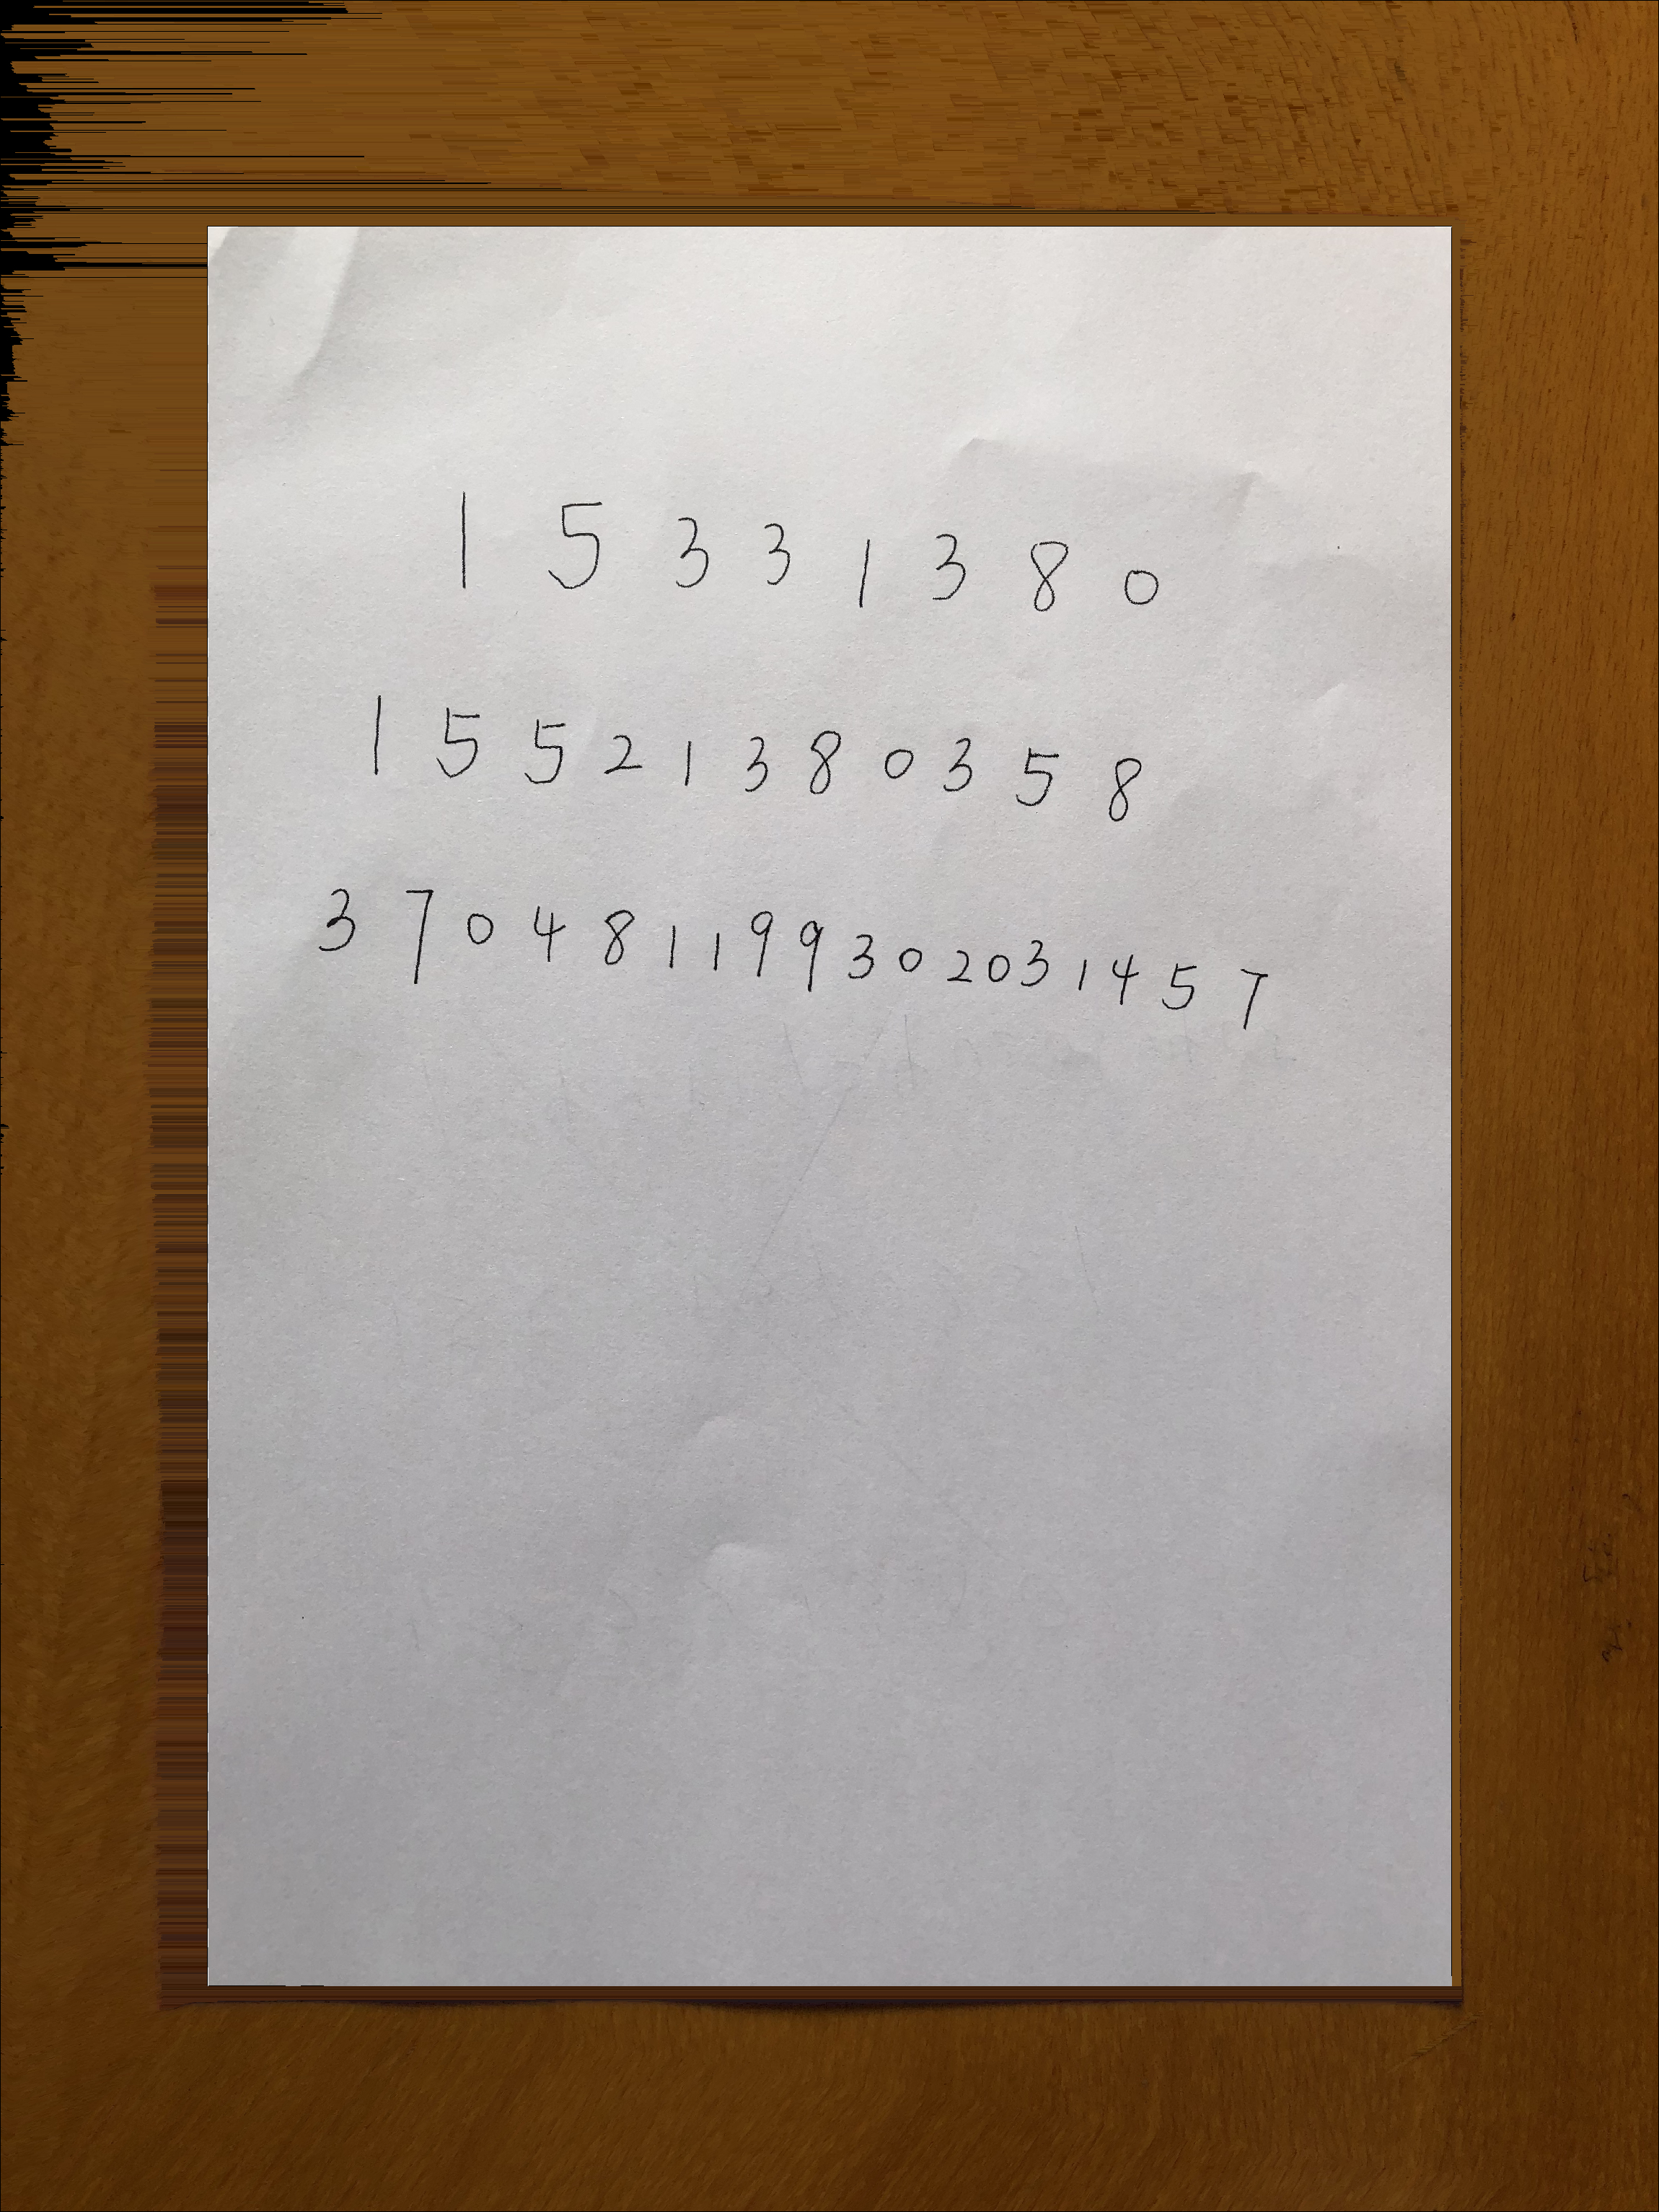 15331380
15521380358
370481199302031457